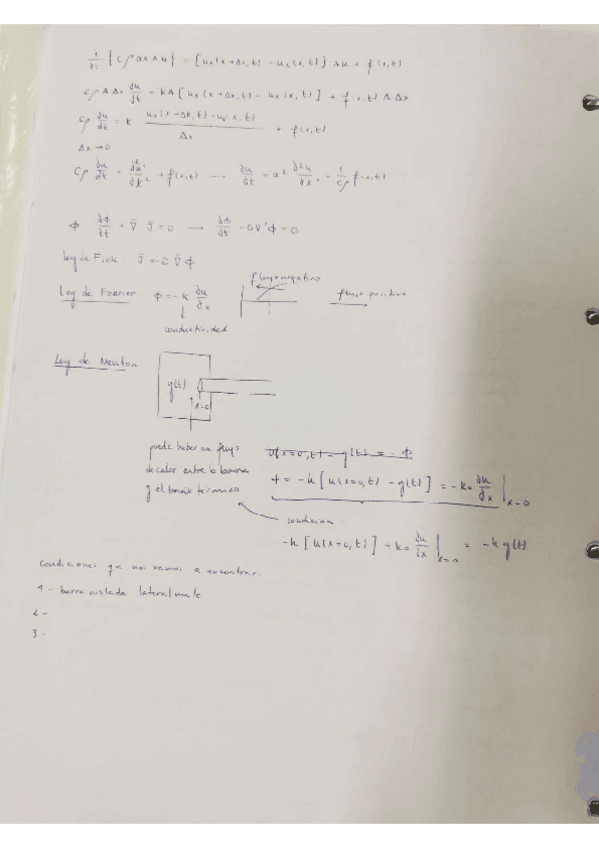 ∂/∂t [cρ Δx A u] = [uₓ(x+Δx,t) - uₓ(x,t)] Au + f(x,t)
cρ A Δx ∂u/∂t = kA [uₓ(x+Δx,t) - uₓ(x,t)] + f(x,t) A Δx
cρ ∂u/∂t = k (uₓ(x+Δx,t) - uₓ(x,t))/Δx + f(x,t)
Δx → 0
cρ ∂u/∂t = ∂²u/∂x² + f(x,t) → ∂u/∂t = α² ∂²u/∂x² - 1/cρ f(x,t)
Φ ∂Φ/∂t + ∇̄ J̄ = 0 → ∂Φ/∂t - D∇²Φ = 0
Ley de Fick: J̄ = -D ∇̄ Φ
Ley de Fourier Φ = -k ∂u/∂x
flujo negativo
flujo positivo
conductividad
Ley de Newton
g(t)
x=0
puede haber un flujo
de calor entre la barra
y el baño térmico
u(x=0,t) - g(t) = - Φ
Φ = -h [u(x=0,t) - g(t)] = -k₀ ∂u/∂x |x=0
condición
-h [u(x=0,t)] + k₀ ∂u/∂x |x=0 = -h g(t)
Condiciones que nos vamos a encontrar:
1 - barra aislada lateralmente
2 -
3 -